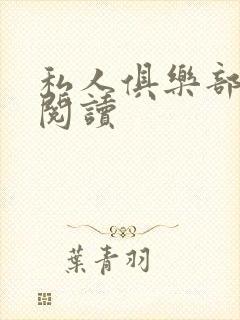 私人俱樂部
閱讀
葉青羽